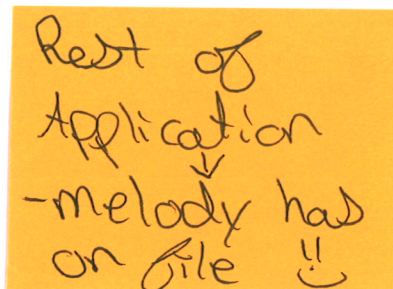 Rest of
Application
↓
-melody has
on file !!